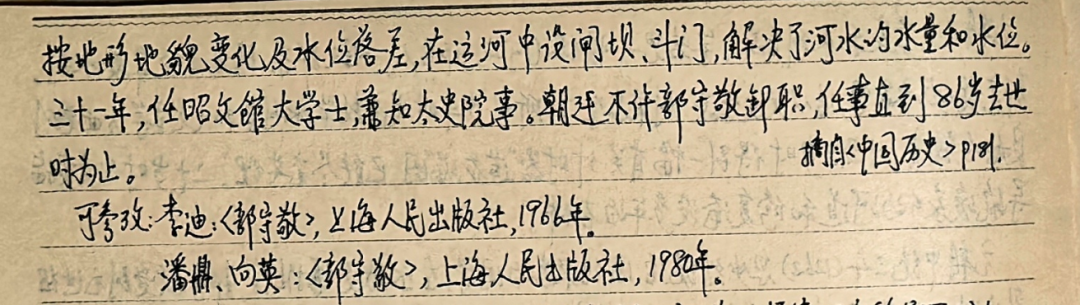 按地形地貌变化及水位落差,在运河中设闸坝、斗门,解决了河水的水量和水位。
三十一年,任昭文馆大学士,兼知太史院事。朝廷不许郭守敬卸职,任事直到86岁去世
时为止。
摘自<中国历史>P181.
可参攷:李迪:<郭守敬>,上海人民出版社,1966年。
潘鼐、向英:<郭守敬>,上海人民出版社,1980年。